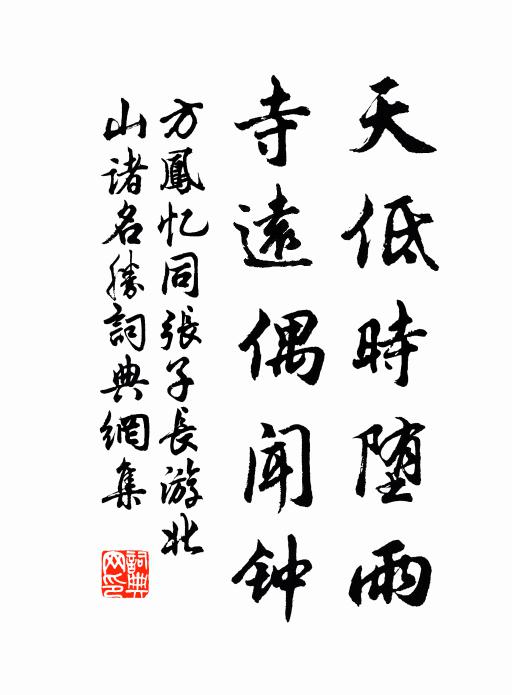 天低時堕雨
寺遠偶闻钟
方鳳忆同張子長游北
山諸名勝詞典網集
詞典网印